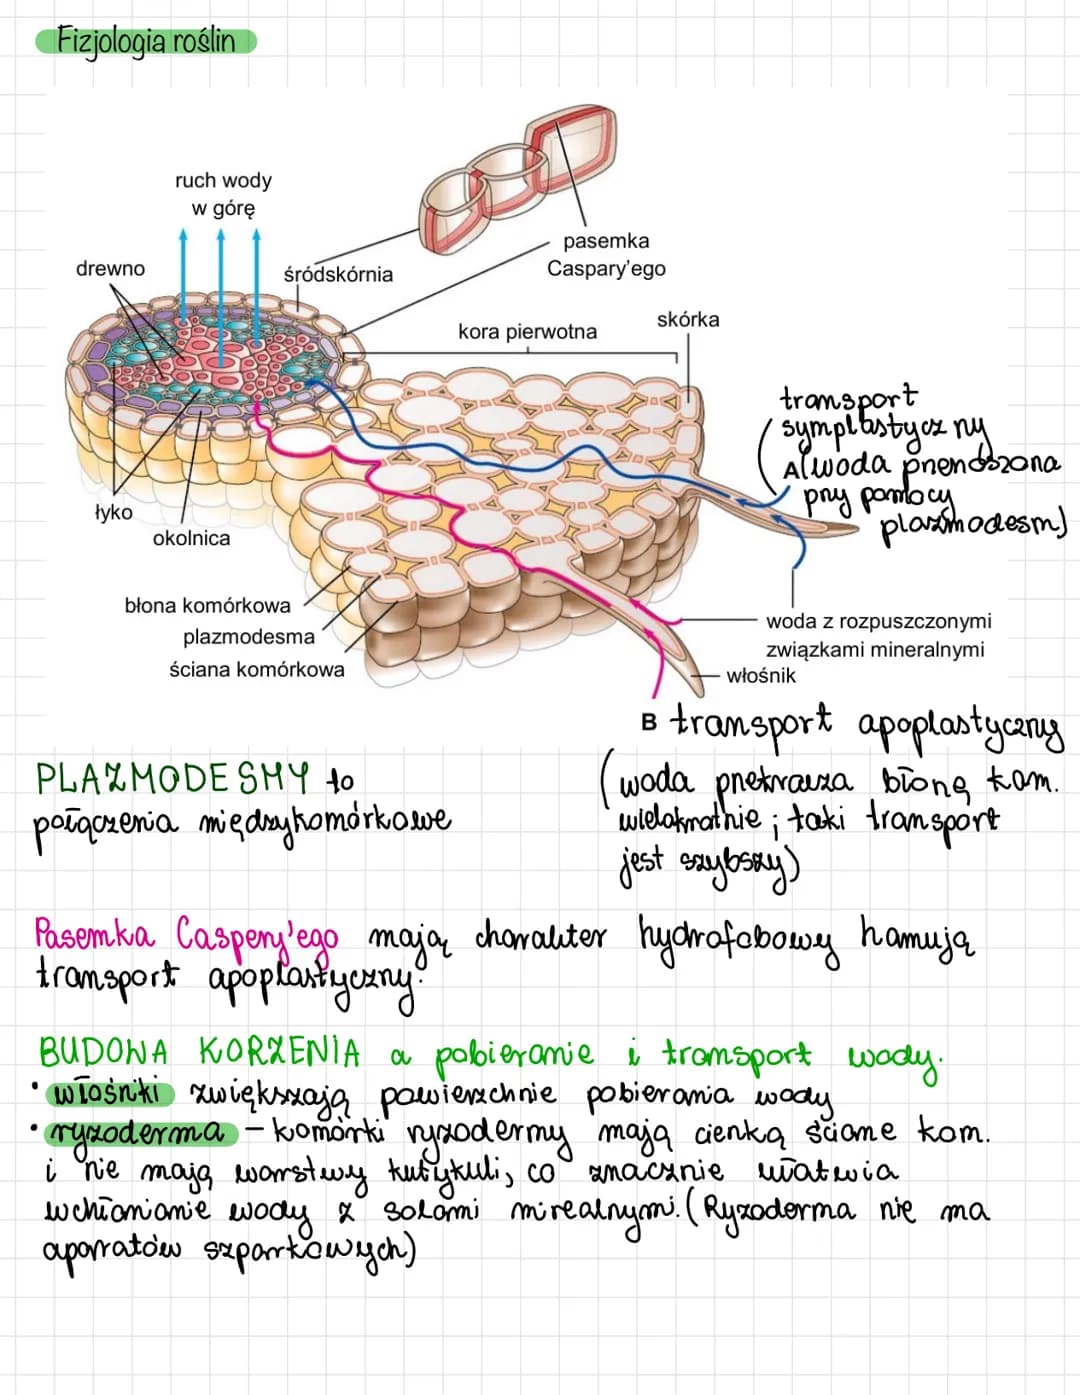 Fizjologia roślin
ruch wody
w górę
drewno
śródskórnia
pasemka
Caspary'ego
kora pierwotna
skórka
transport
symplastyczny
A (woda przenoszona
przy pomocy
plazmodesm)
łyko
okolnica
błona komórkowa
plazmodesma
ściana komórkowa
woda z rozpuszczonymi
związkami mineralnymi
włośnik
B transport apoplastyczny
(woda przetracza błonę kom.
wielokrotnie; taki transport
jest szybszy)
PLAZMODESMY to
połączenia międzykomórkowe
Pasemka Caspery'ego mają charakter hydrofobowy hamują
transport apoplastyczny.
BUDOWA KORZENIA a pobieranie i transport wody.
• włośniki zwiększają powierzchnie pobierania wody
• ryzoderma – komórki ryzodermy mają cienką ściane kom.
i nie mają warstwy kutykuli, co znacznie ułatwia
wchłanianie wody z solami mirealnymi. (Ryzoderma nie ma
aparatów szparkowych)